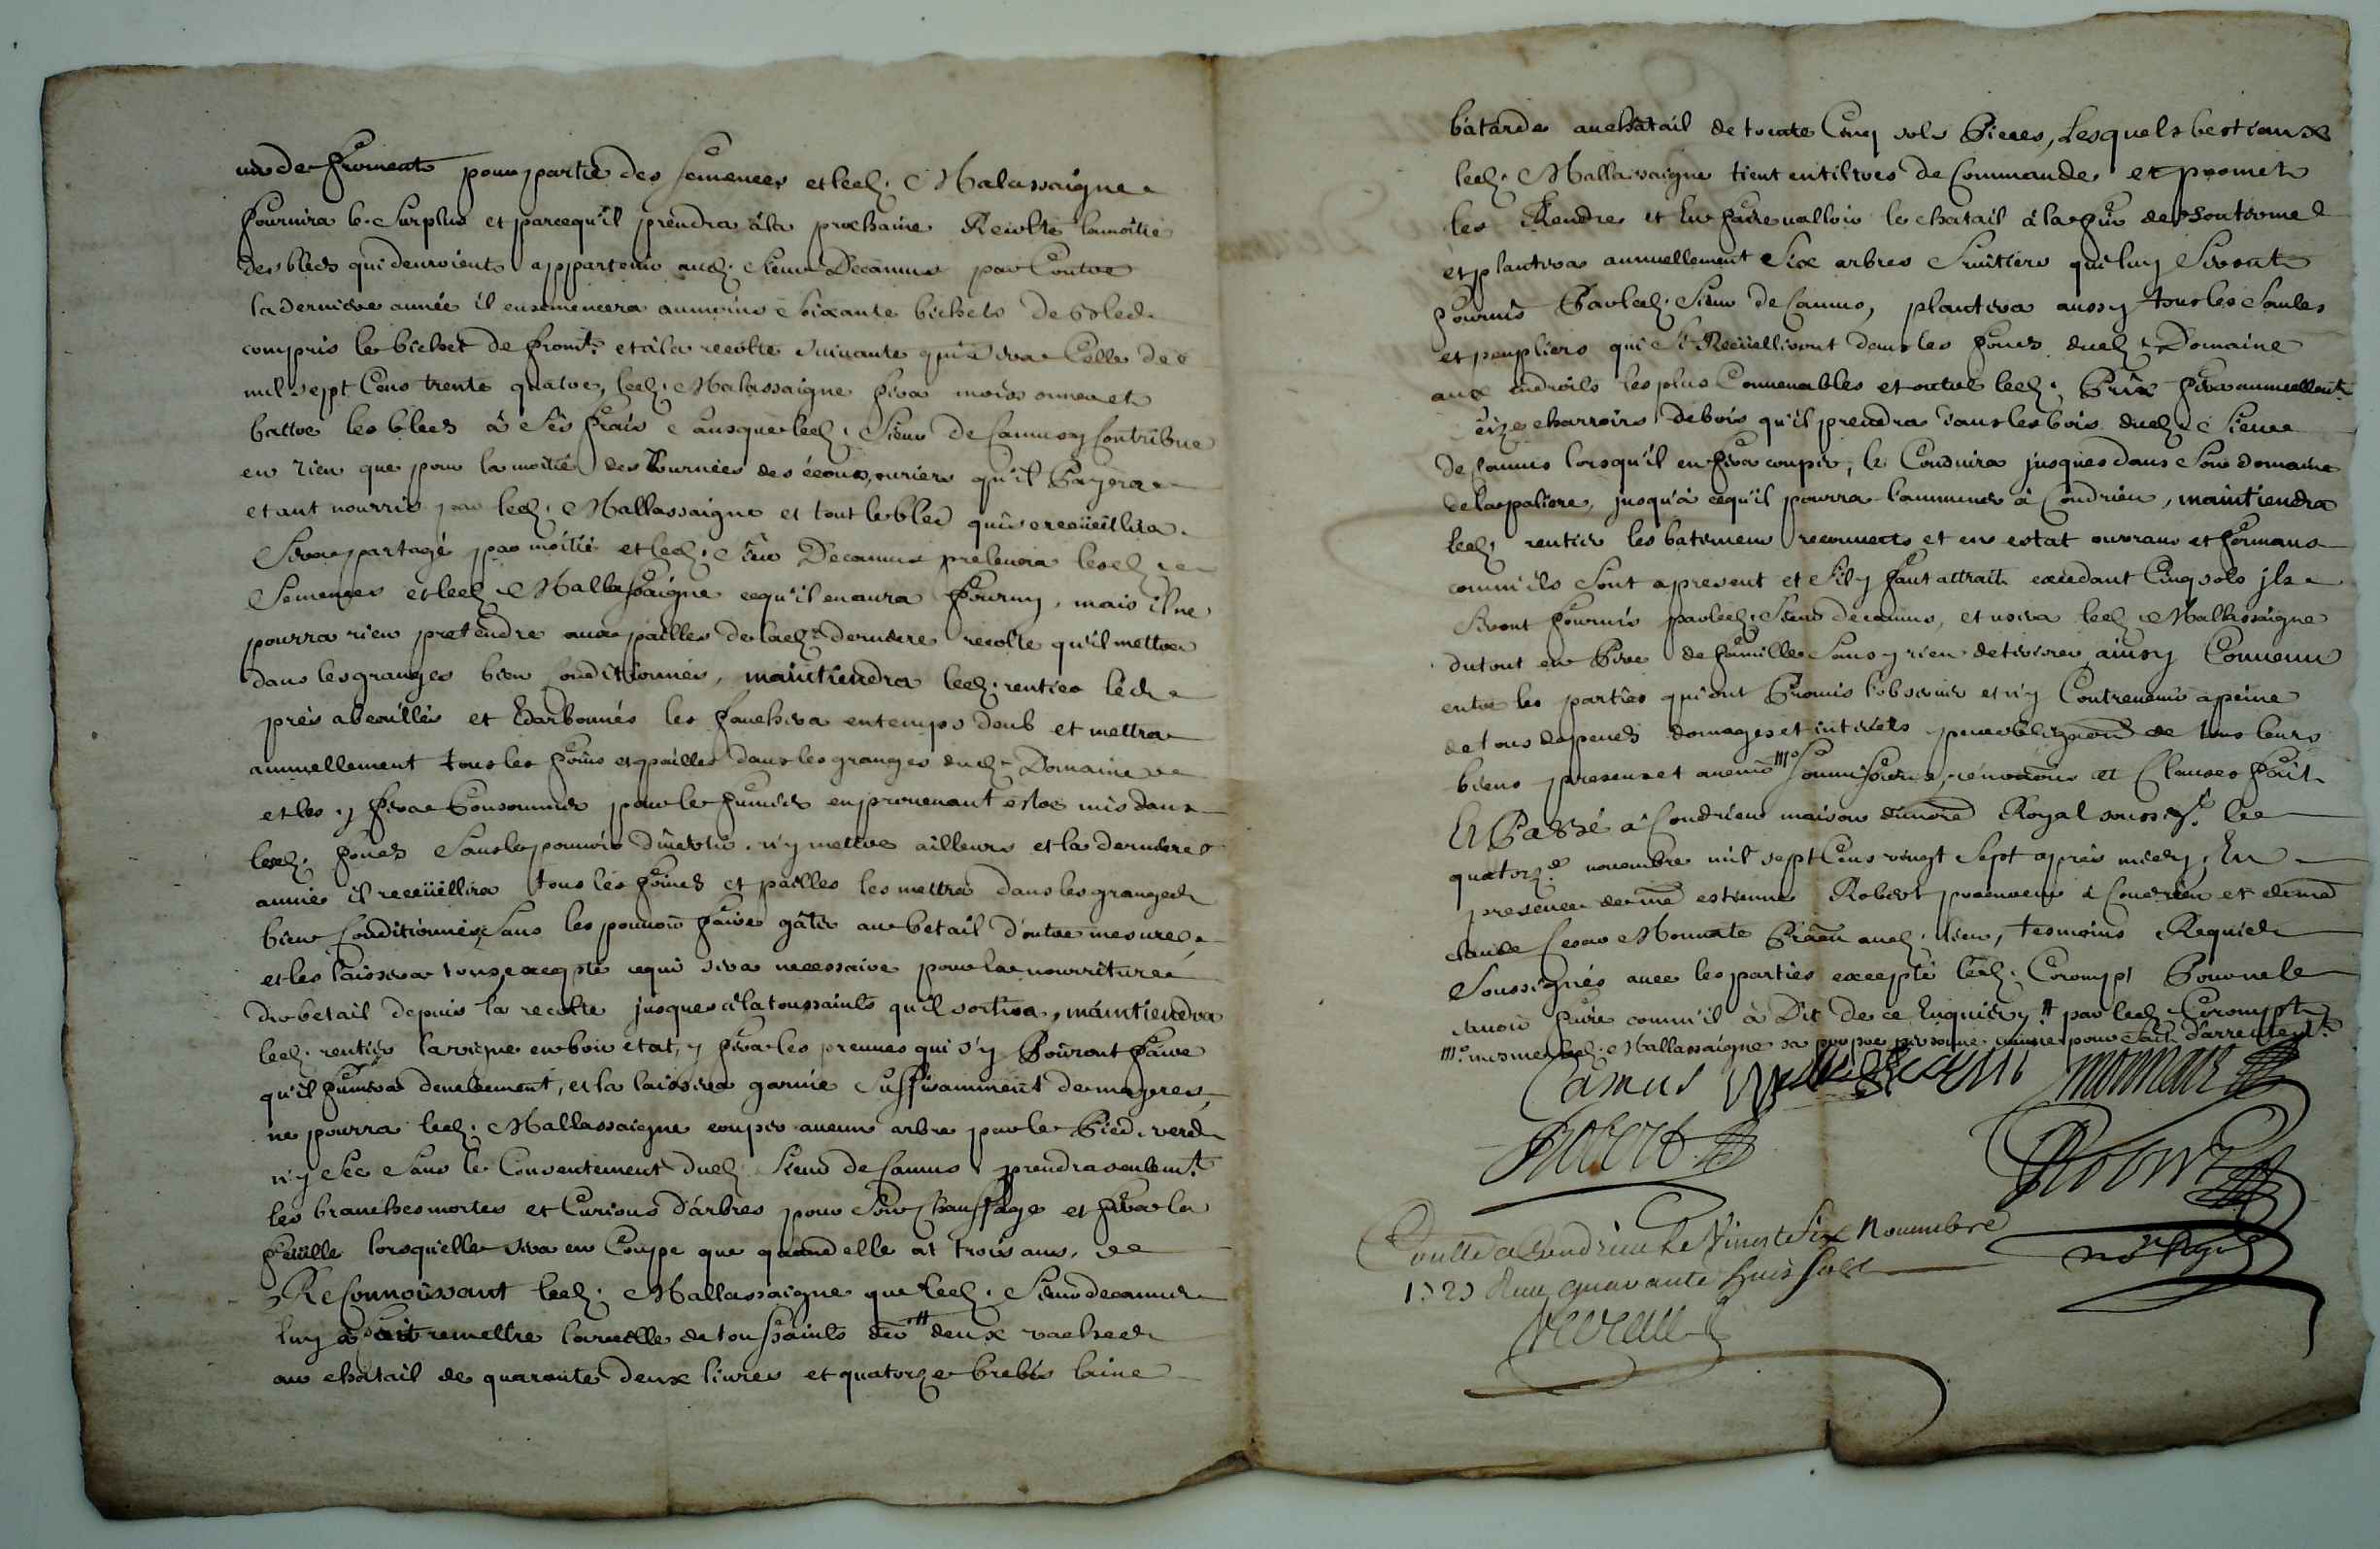 un de froment pour partie des semences et led. Malassaigne
fournira le surplus et parcequ'il prendra à la prochaine Recolte la moitié
des bleds qui deuroient appartenir aud. sieur Decamus par Contre
la derniere année il ensemencera aumoins soixante bichets de Bled
compris le bichet de from.t et a la recolte suiuante qui sera Celle de
mil sept Cens trente quatre, led. Malassaigne fera moissonner et
battre les bleds à ses frais sans que led. sieur de Camus y Contribue
en rien que pour la moitié des Journées des écoussouriers qu'il Payera
etant nourris par led. Mallassaigne et tout le bled qui se recüeillira
Sera partagé par moitié et led. sieur Decamus preleuera lesd.
Semences et led. Mallassaigne cequ'il en aura fourny, mais il ne
pourra rien pretendre aux pailles de lad. derniere recolte qu'il mettra
dans les granges bien conditionnées, maintiendra led. rentier les
prés abeaillés et Edarbonnés les fauchera en temps doub et mettra
annuellement tous les foins et pailles dans les granges dud. Domaine
et les y fera Consommer pour le fumier en prouenant estre mis dans
led. fonds Sans le pouuoir diuertir n'y mettre ailleurs et la derniere
année il recüeillira tous les foins et pailles les mettra dans les granges
bien Conditionnés, Sans les pouuoir faire gâter au betail d'outre mesure
et les laissera tous excepté cequi sera necessaire pour la nourriture
du betail depuis la recolte jusques à la toussaints qu'il sortira, maintiendra
led. rentier la vigne en bon etat, y fera les preuues qui s'y Pouront faire
qu'il fumera deuëbement, et la laissera garnie suffisamment de mayeres,
ne pourra led. Mallassaigne couper aucun arbre par le Pied, verd
n'y Sec Sans le Consentement dud. Sieur de Camus, prendra seulem.t
les branches mortes et Curions d'arbres pour Son Chauffage et fera la
feuille lorsqu'elle sera en Coupe que quand elle at trois ans,
Reconnoissant led. Mallassaigne que led. Sieur decamus
luy a fait remettre la veille de toussaints der.e deux vaches
au chatail de quarante deux liures et quatorze brebis laine
batarde au chatail de trente Cinq sols Pieces, Lesquels bestiaux
led. Mallassaigne tient en tiltres de Commande et promet
les Rendre et En faire valloir le chatail à la fin de Son terme
et plantera annuellement Six arbres fruitiers qui luy Seront
fournis Par led. Sieur de Camus, plantera aussy tous les Saules
et peupliers qui se Recüelliront dans les fonds dud. Domaine
aux endroits les plus Conuenables et outre led. Prix fera annuellem.t
seize charroirs de bois qu'il prendra dans les bois dud. Sieur
de Camus lorsqu'il en fera couper, le Conduira jusques dans Son domaine
de la paliere, jusqu'à cequ'il pourra l'ammener à Condrieu, maintiendra
led. rentier les batimens recouuerts et en estat ouurans et fermans
comm'ils sont apresent et s'il y faut attrait excedant Cinq sols jls
Seront fournis par led. Sieur decamus, et usera led. Mallassaigne
du tout en Pere de famille Sans y rien deteriorer, ainsy Conuenu
entre les parties qui ont Promis l'obseruer et n'y Contreuenir apeine
de tous depends domages et interets par obligaōn de tous leurs
biens presens et auenir soumissions, renonciaōns et Clauses fait
Et Passé à Condrieu maison du nore Royal soussig.é le
quatorz.e nouembre mil sept Cens vingt Sept apres midy. En
presence de me estienne Robert procureur à Condrieu et de me
claude Cesar Monnate Praēn aud. lieu, tesmoins Requis
Soussignés auec les parties excepté led. Corompt Pour ne le
sauoir faire comm'il à Dit de ce Enquis par led. Corompt
m.e mesme led. Mallassaigne sa propre personne comme pour fait d'arrentem.t
Camus monnate
Robert Robert
no.re Royal
Conllé a Condrieu le Vingt Six Nouembre
1727 Reçu quarante huit sols